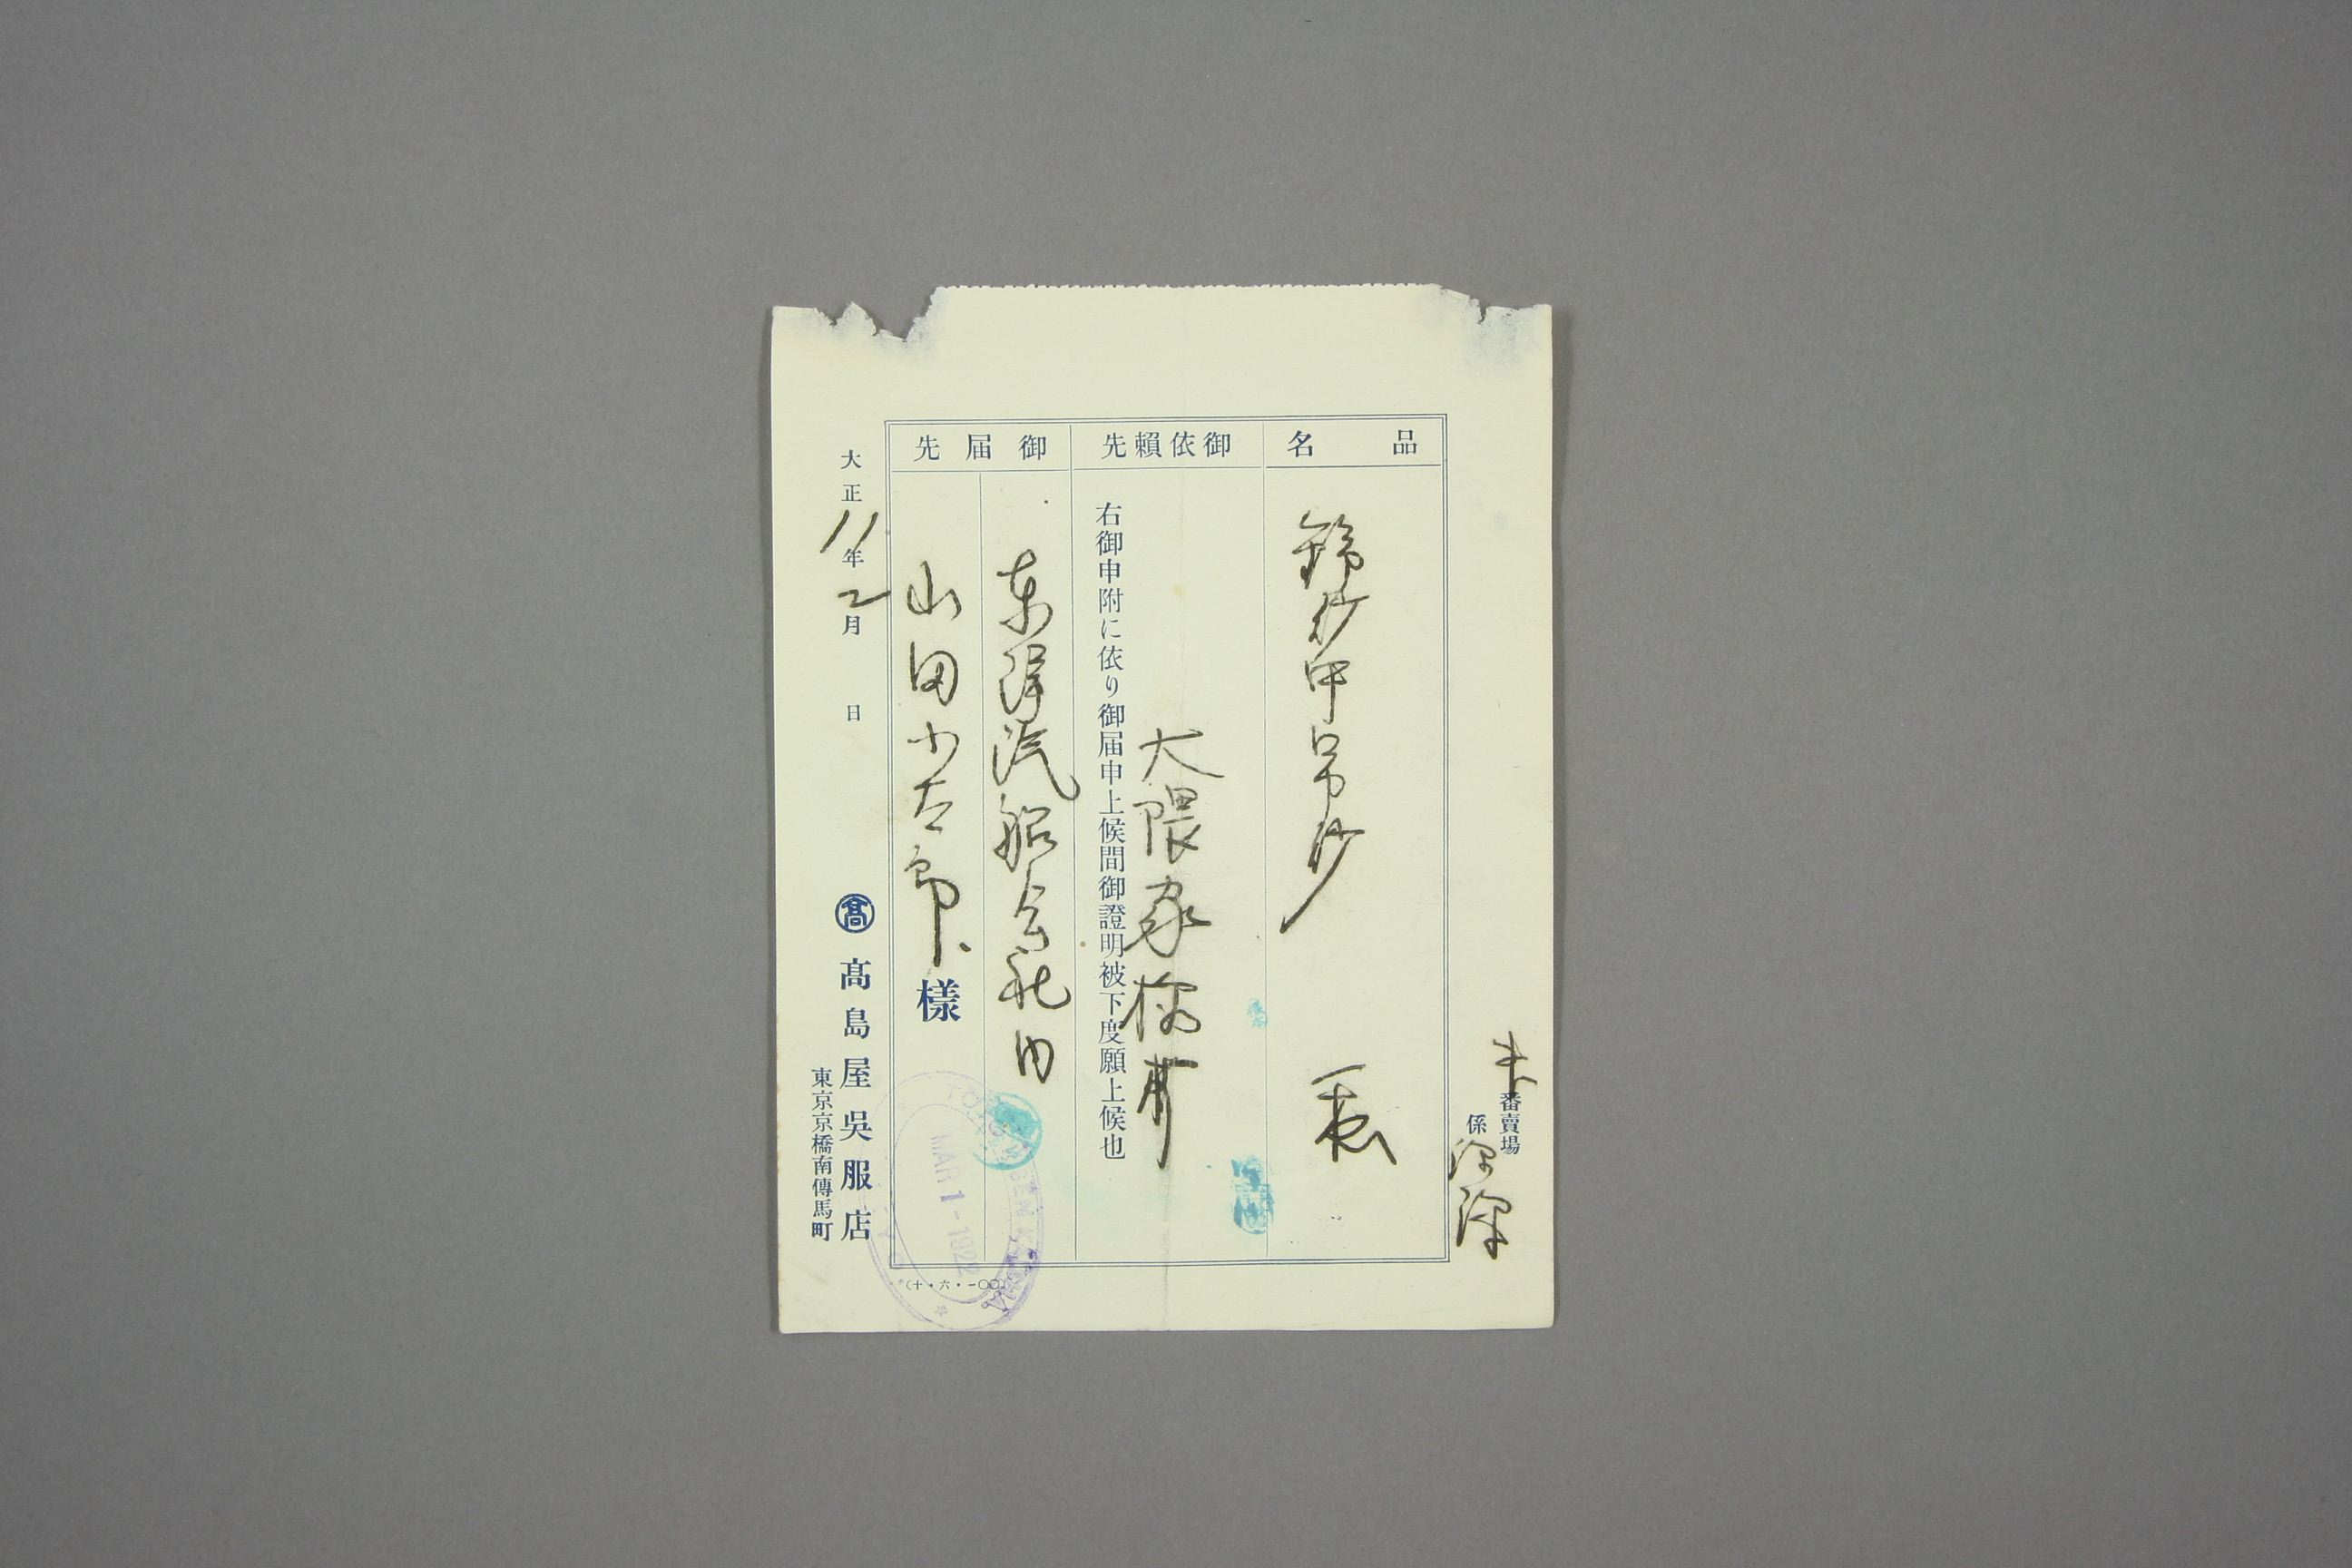 番賣場
係
品名
錦紗中帛紗
一表
御依頼先
大隈家様
右御申附に依り御届申上候間御證明被下度願上候也
御届先
東洋汽船会社内
山田小太郎様
大正11年2月 日
髙 髙島屋吳服店
東京京橋南傳馬町
(十・六・一〇〇)
MAR 1-1922